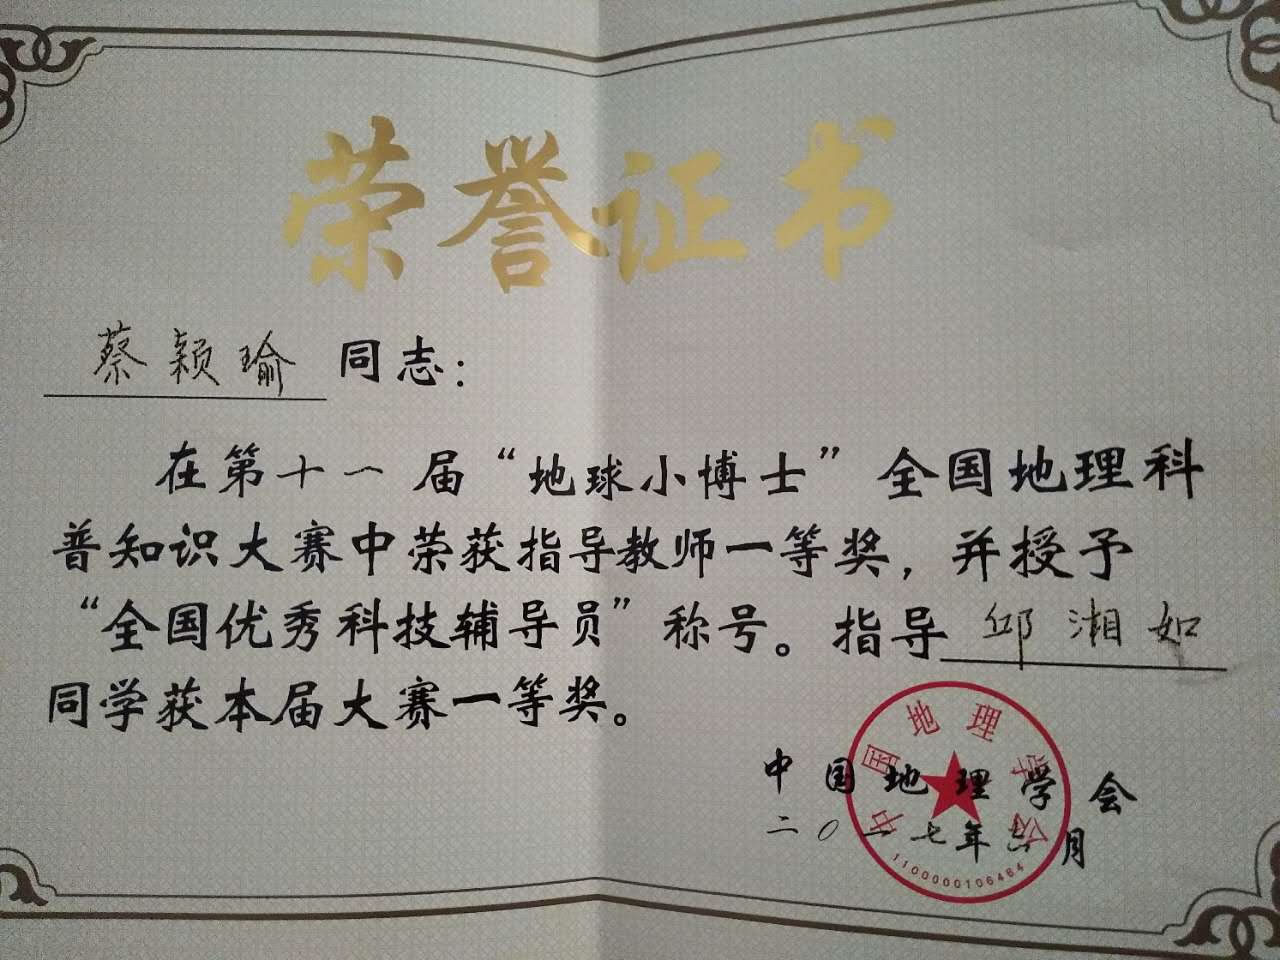 荣誉证书
蔡颖瑜 同志：
在第十一届“地球小博士”全国地理科
普知识大赛中荣获指导教师一等奖，并授予
“全国优秀科技辅导员”称号。指导邱湘如
同学获本届大赛一等奖。
中国地理学会
二〇一七年六月
中国地理学会
1100000106464